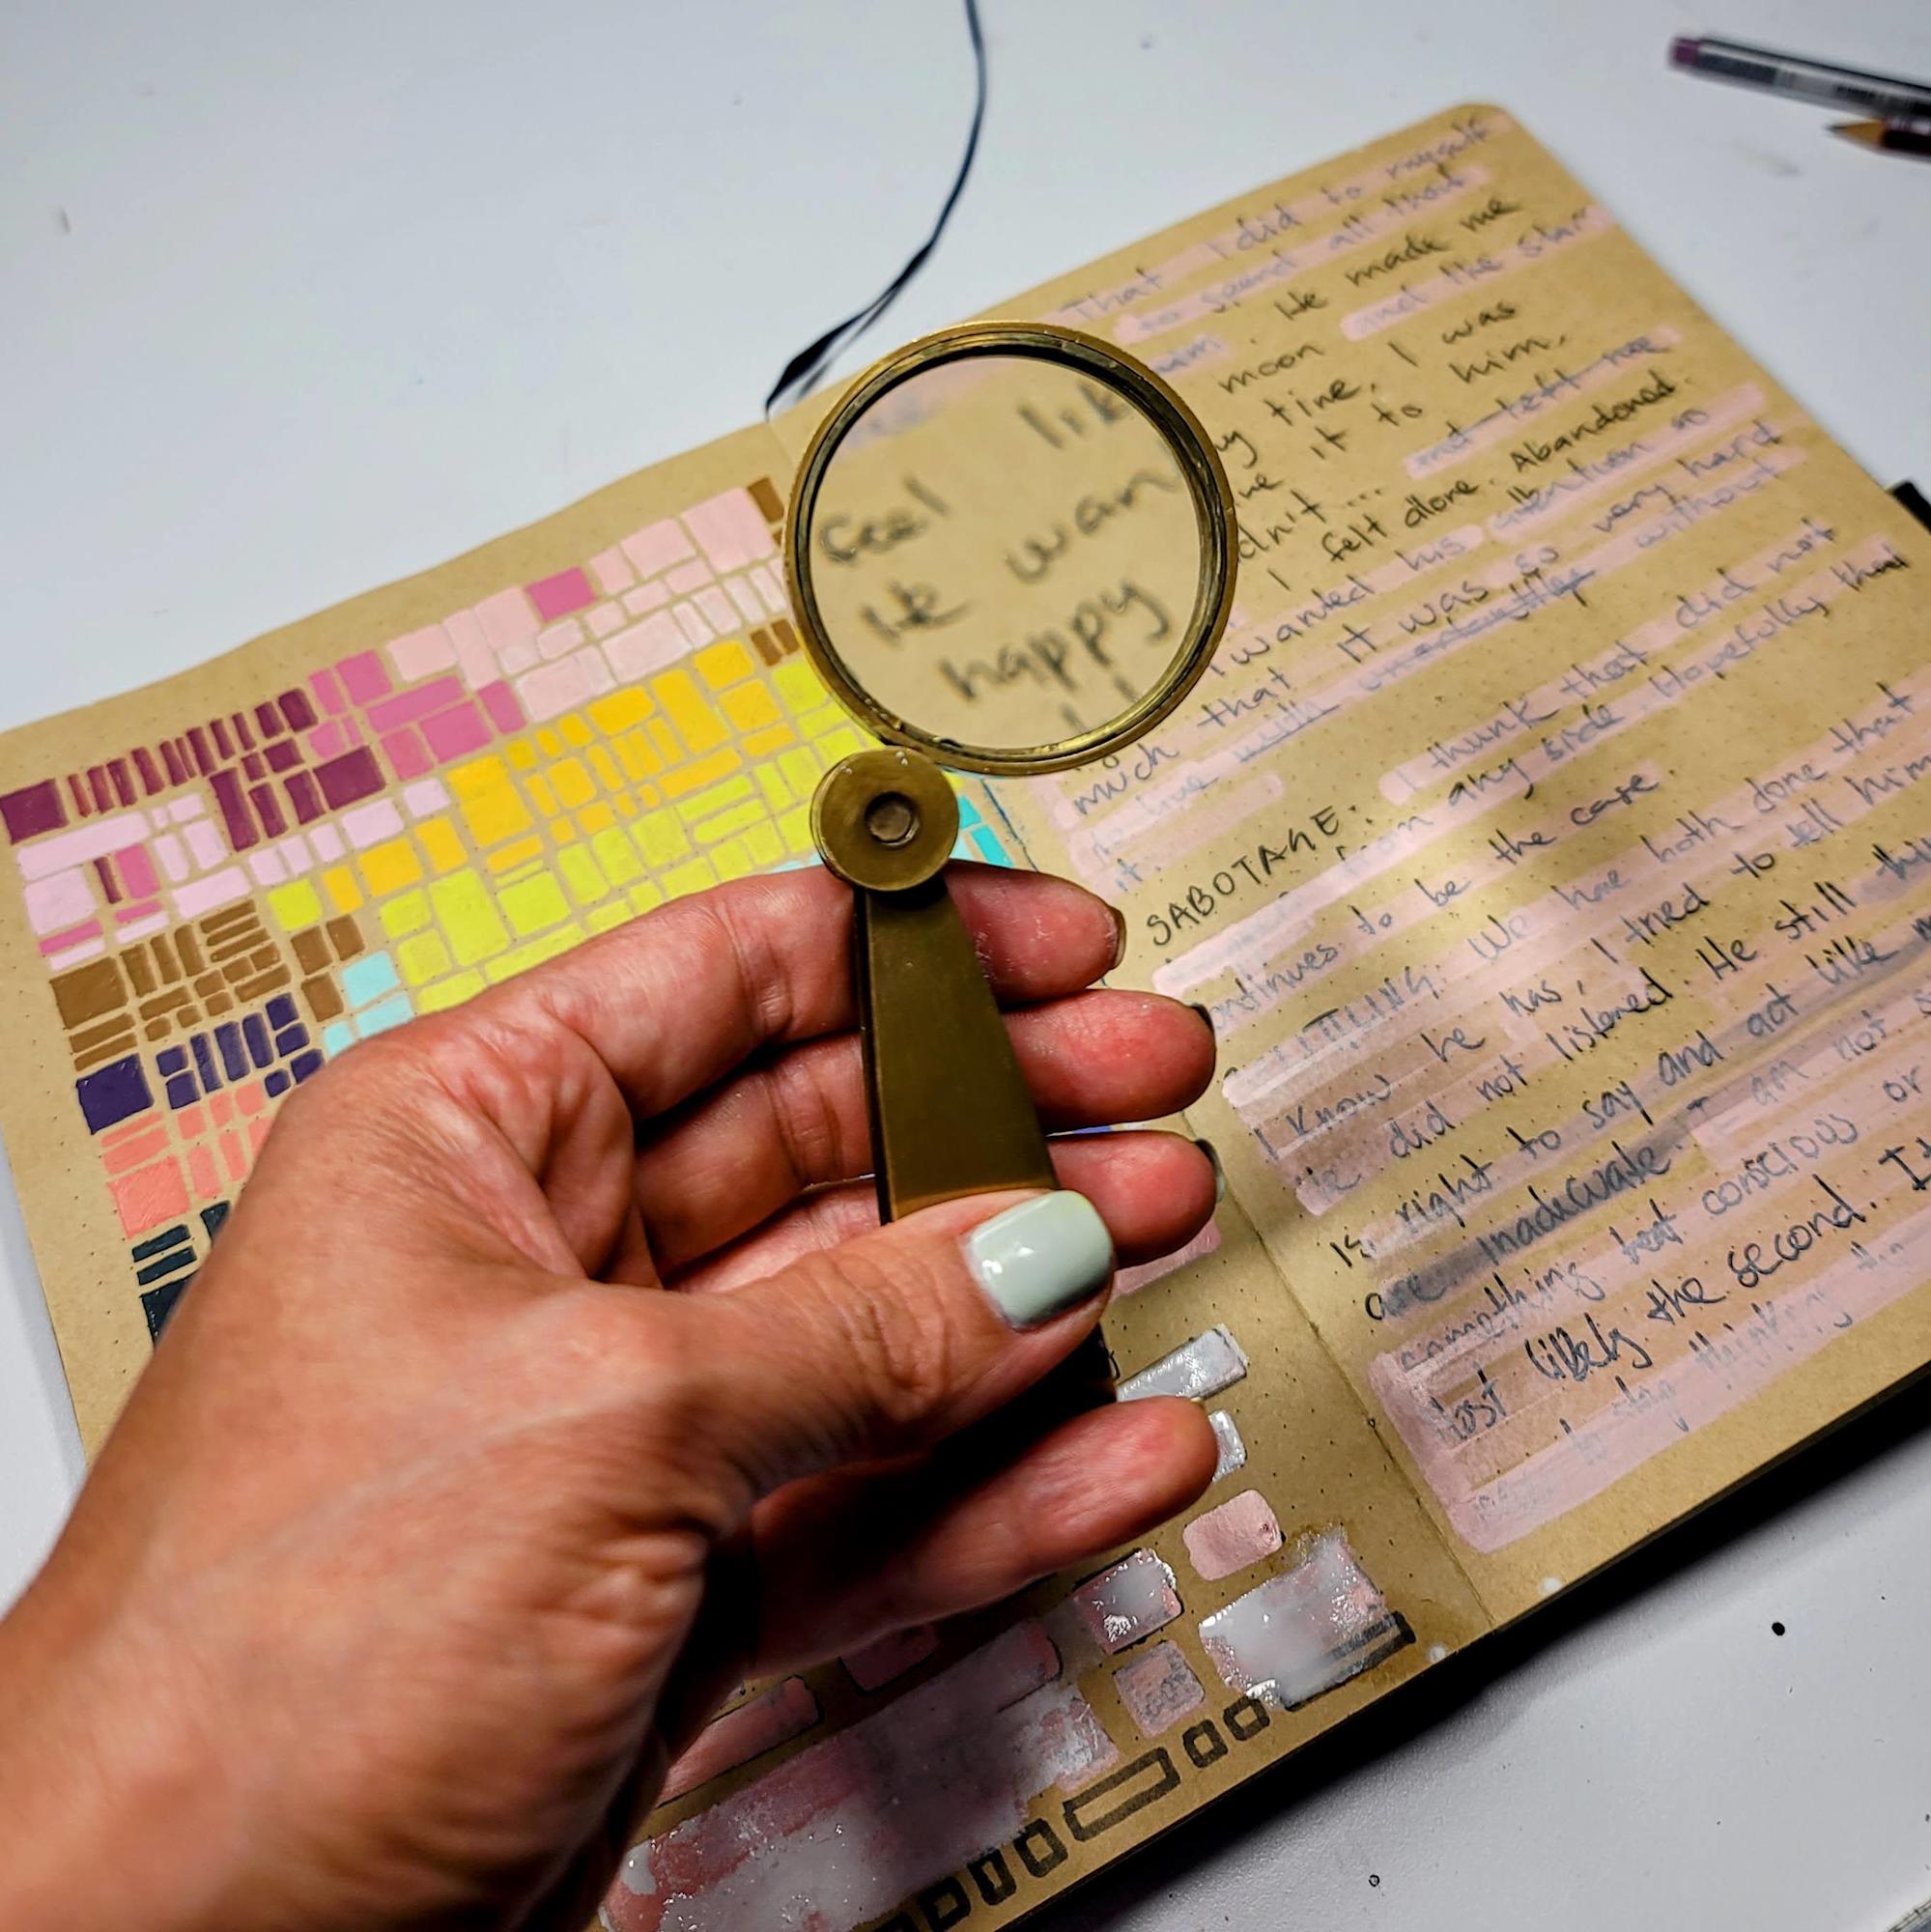 That I did to myself
to spend all that
him. He made me
feel like moon and like the stars
He wan ny time, I was
happy it to him,
dn't... and left me
I felt alone. Abandoned.
I wanted his attention so
much that it was so very hard
to live with without
it.
SABOTAGE: I think that did not
from any side. Hopefully that
ontinues to be the case.
We have both done that
I know he has, I tried to tell him
he did not listened. He still
is right to say and act like
are inadequate I am not
something but conscious or
the second.
to stop thinking